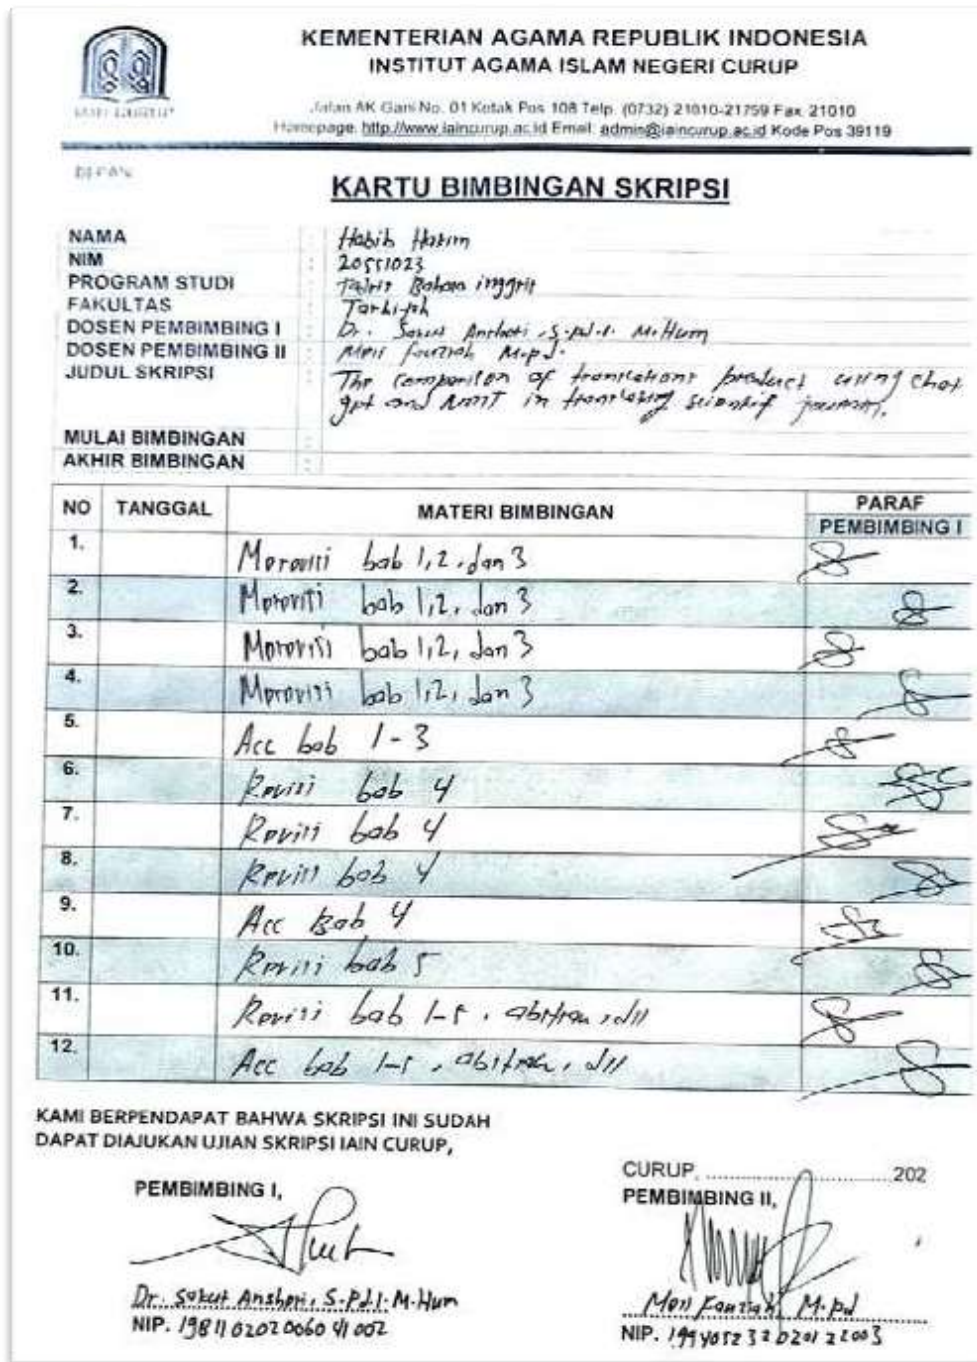 KEMENTERIAN AGAMA REPUBLIK INDONESIA
INSTITUT AGAMA ISLAM NEGERI CURUP
Jalan AK Gani No. 01 Kotak Pos 108 Telp. (0732) 21010-21759 Fax. 21010
Homepage: http://www.iaincurup.ac.id Email: admin@iaincurup.ac.id Kode Pos 39119
DEPAN
KARTU BIMBINGAN SKRIPSI
NAMA : Habib Hakim
NIM : 20551023
PROGRAM STUDI : Tadris Bahasa inggris
FAKULTAS : Tarbiyah
DOSEN PEMBIMBING I : Dr. Sakut Anshori, S.Pd.I. M.Hum
DOSEN PEMBIMBING II : Meii Fauziah M.Pd.
JUDUL SKRIPSI : The Comparison of translations product using Chat
gpt and NMT in translating scientif
MULAI BIMBINGAN :
AKHIR BIMBINGAN :
NO TANGGAL MATERI BIMBINGAN PARAF
PEMBIMBING I
1. Merevisi bab 1, 2, dan 3
2. Merevisi bab 1, 2, dan 3
3. Merevisi bab 1, 2, dan 3
4. Merevisi bab 1, 2, dan 3
5. Acc bab 1 - 3
6. Revisi bab 4
7. Revisi bab 4
8. Revisi bab 4
9. Acc Bab 4
10. Revisi bab 5
11. Revisi bab 1-5, abstrak, dll
12. Acc bab 1-5, abstrak, dll
KAMI BERPENDAPAT BAHWA SKRIPSI INI SUDAH
DAPAT DIAJUKAN UJIAN SKRIPSI IAIN CURUP,
CURUP, ........................... 202
PEMBIMBING I,
PEMBIMBING II,
Dr. Sakut Anshori, S.Pd.I. M.Hum
Meii Fauziah, M.Pd
NIP. 198110202006041002
NIP. 199405232020122003